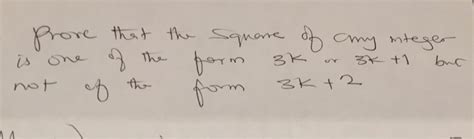 Prove that the square of any integer
is one of the form 3k or 3k+1 but
not of the form 3k+2